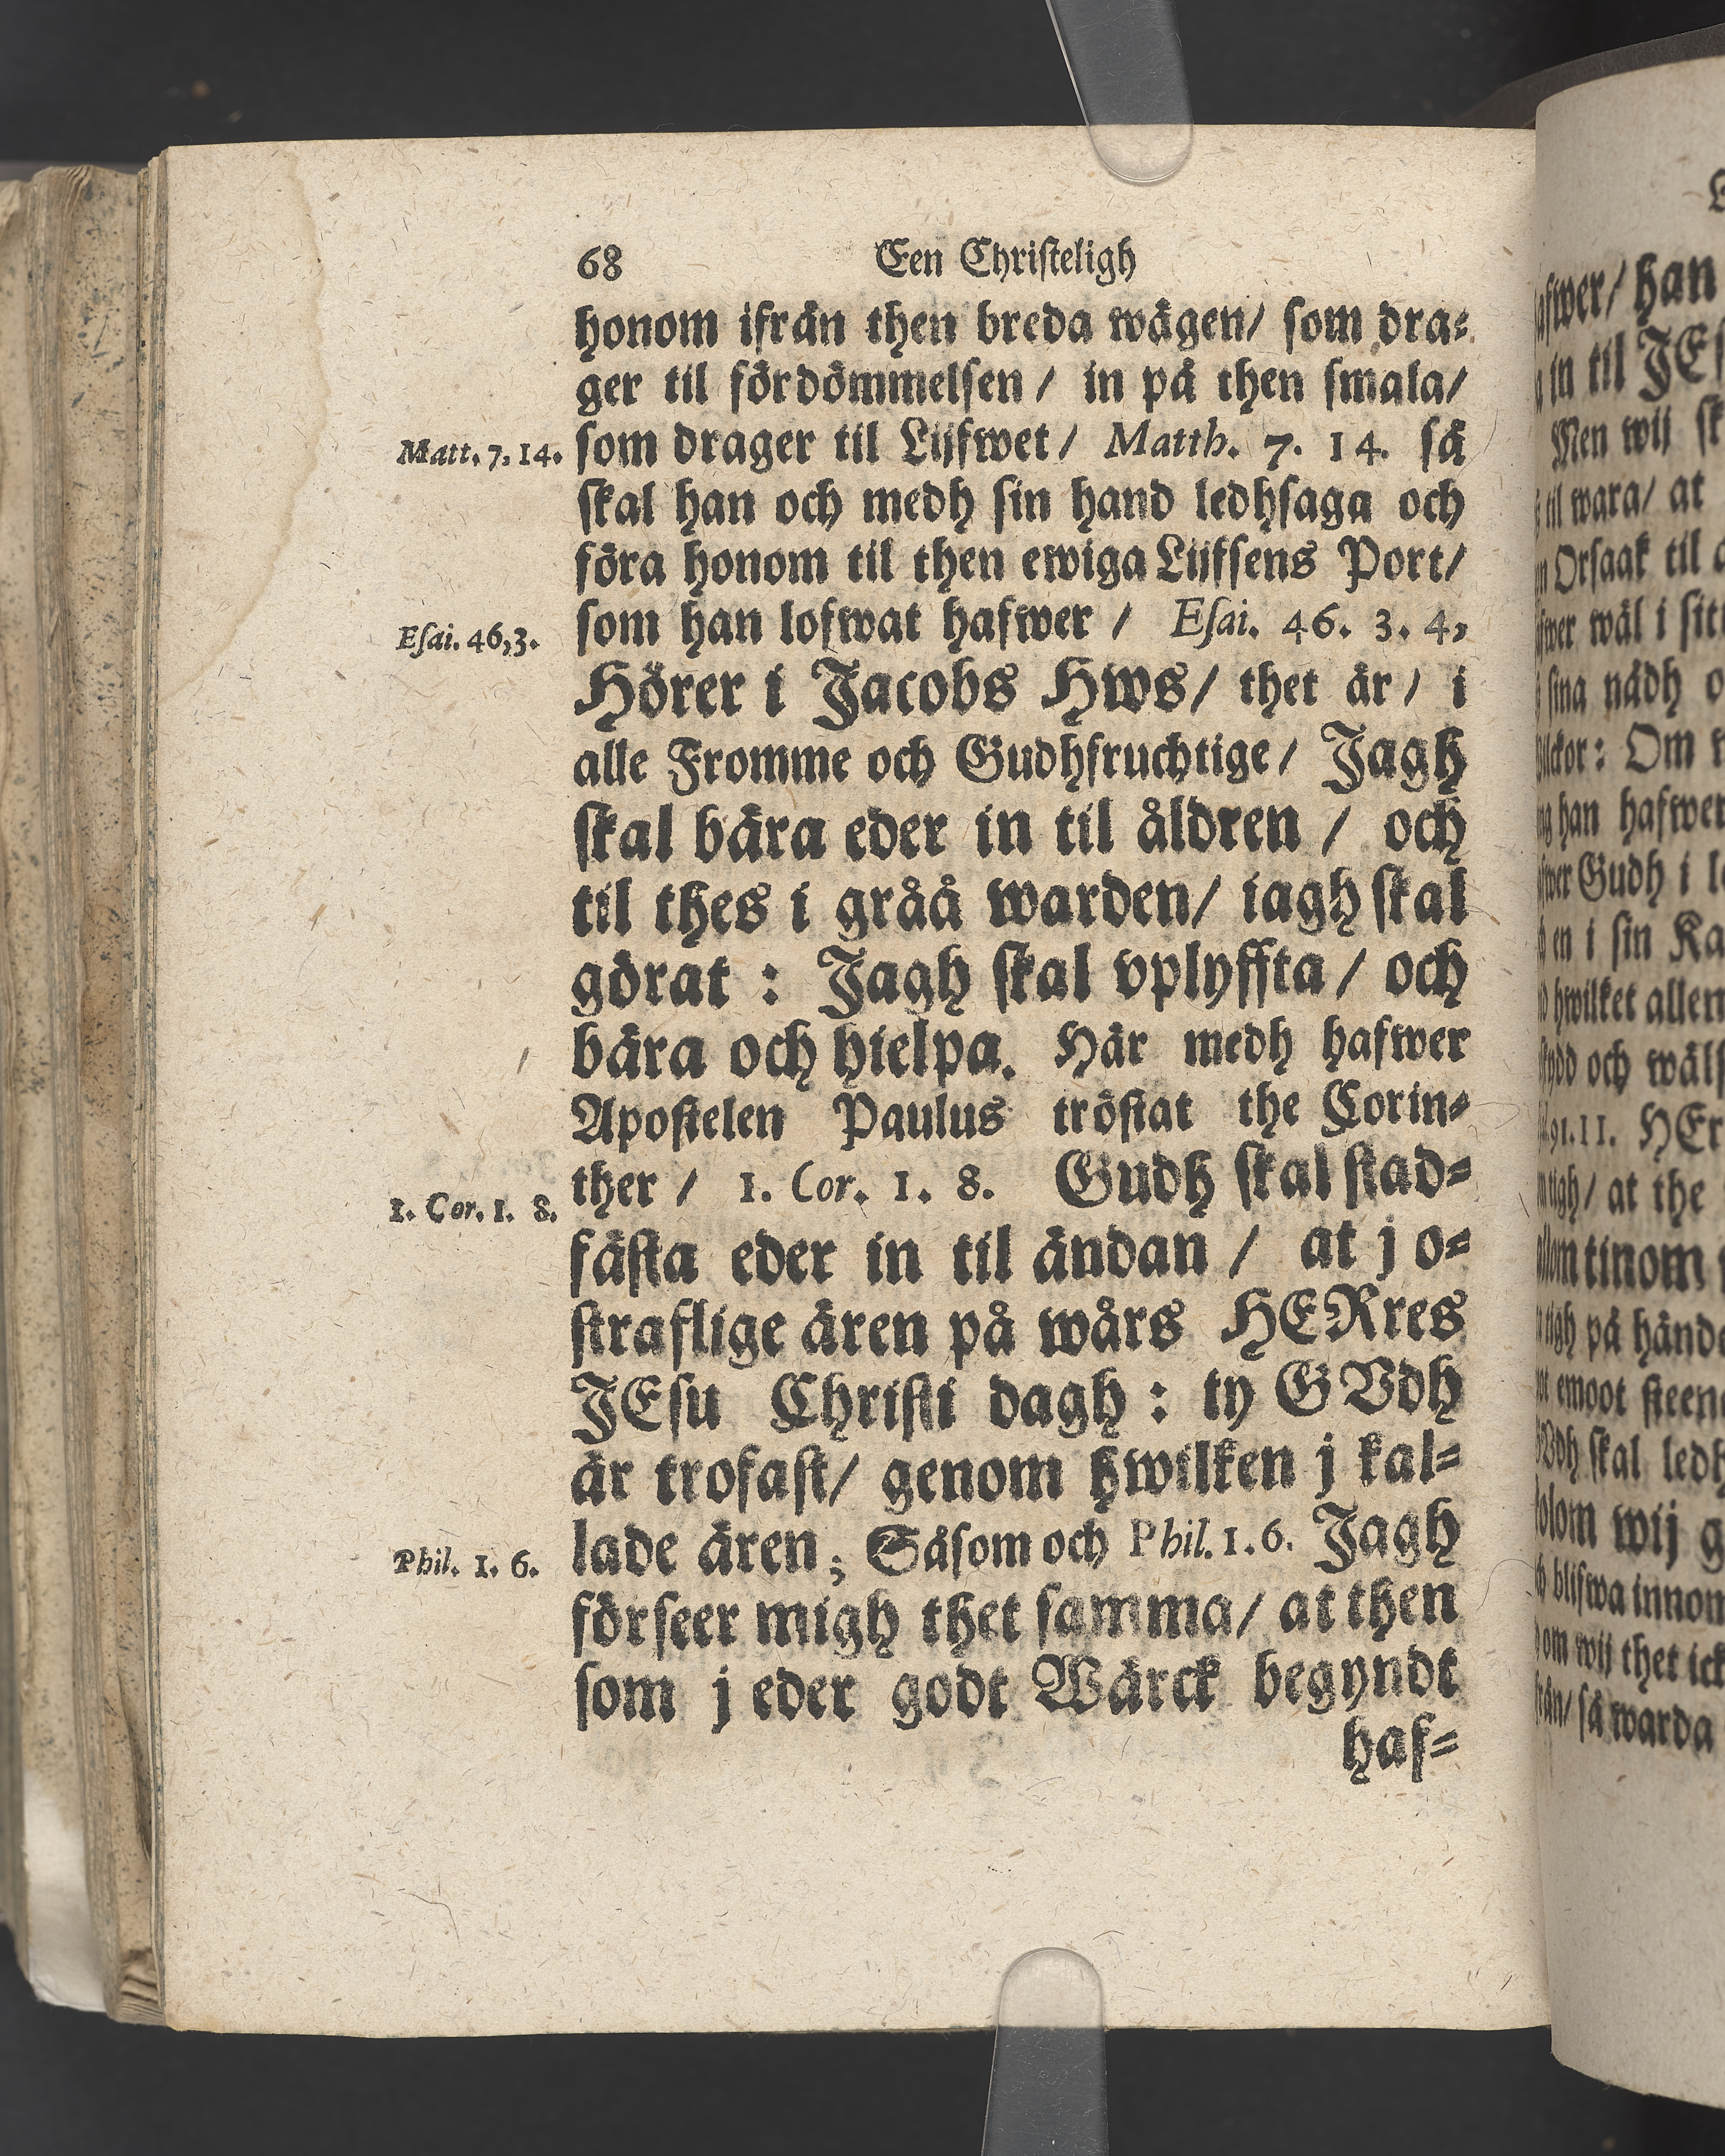 68 Een Christeligh
honom ifrån then breda wägen/ som dra-
ger til fördömmelsen / in på then smala/
Matt. 7, 14. som drager til Lijfwet / Matth. 7. 14. så
skal han och medh sin hand ledhsaga och
föra honom til then ewiga Lijfsens Port/
Esai. 46,3. som han lofwat hafwer / Esai. 46. 3. 4,
Hörer i Jacobs Hws/ thet är / i
alle Fromme och Gudhfruchtige / Jagh
skal bära eder in til åldren / och
til thes i gråå warden/ iagh skal
görat : Jagh skal vplyffta / och
bära och hielpa. Här medh hafwer
Apostelen Paulus tröstat the Corin-
1. Cor. 1. 8. ther / 1. Cor. 1. 8. Gudh skal stad-
fästa eder in til ändan / at j o-
straflige ären på wårs HERres
JEsu Christi dagh : ty GVdh
är trofast/ genom hwilken j kal-
Phil. 1. 6. lade ären; Såsom och Phil. 1. 6. Jagh
förseer migh thet samma/ at then
som j eder godt Wärck begyndt
haf-
afwer/ han
in til JEs
Men wij sk
til wara/ at
Orsaak til
wäl i sitt
sina nådh o
Om
han hafwer
Gudh i
en i sin Ka
hwilket allen
och wäls
91. 11. HEr
at the
tinom
tigh på hände
emoot steen
skal ledh
wij g
blifwa innon
om wij thet ick
så warda